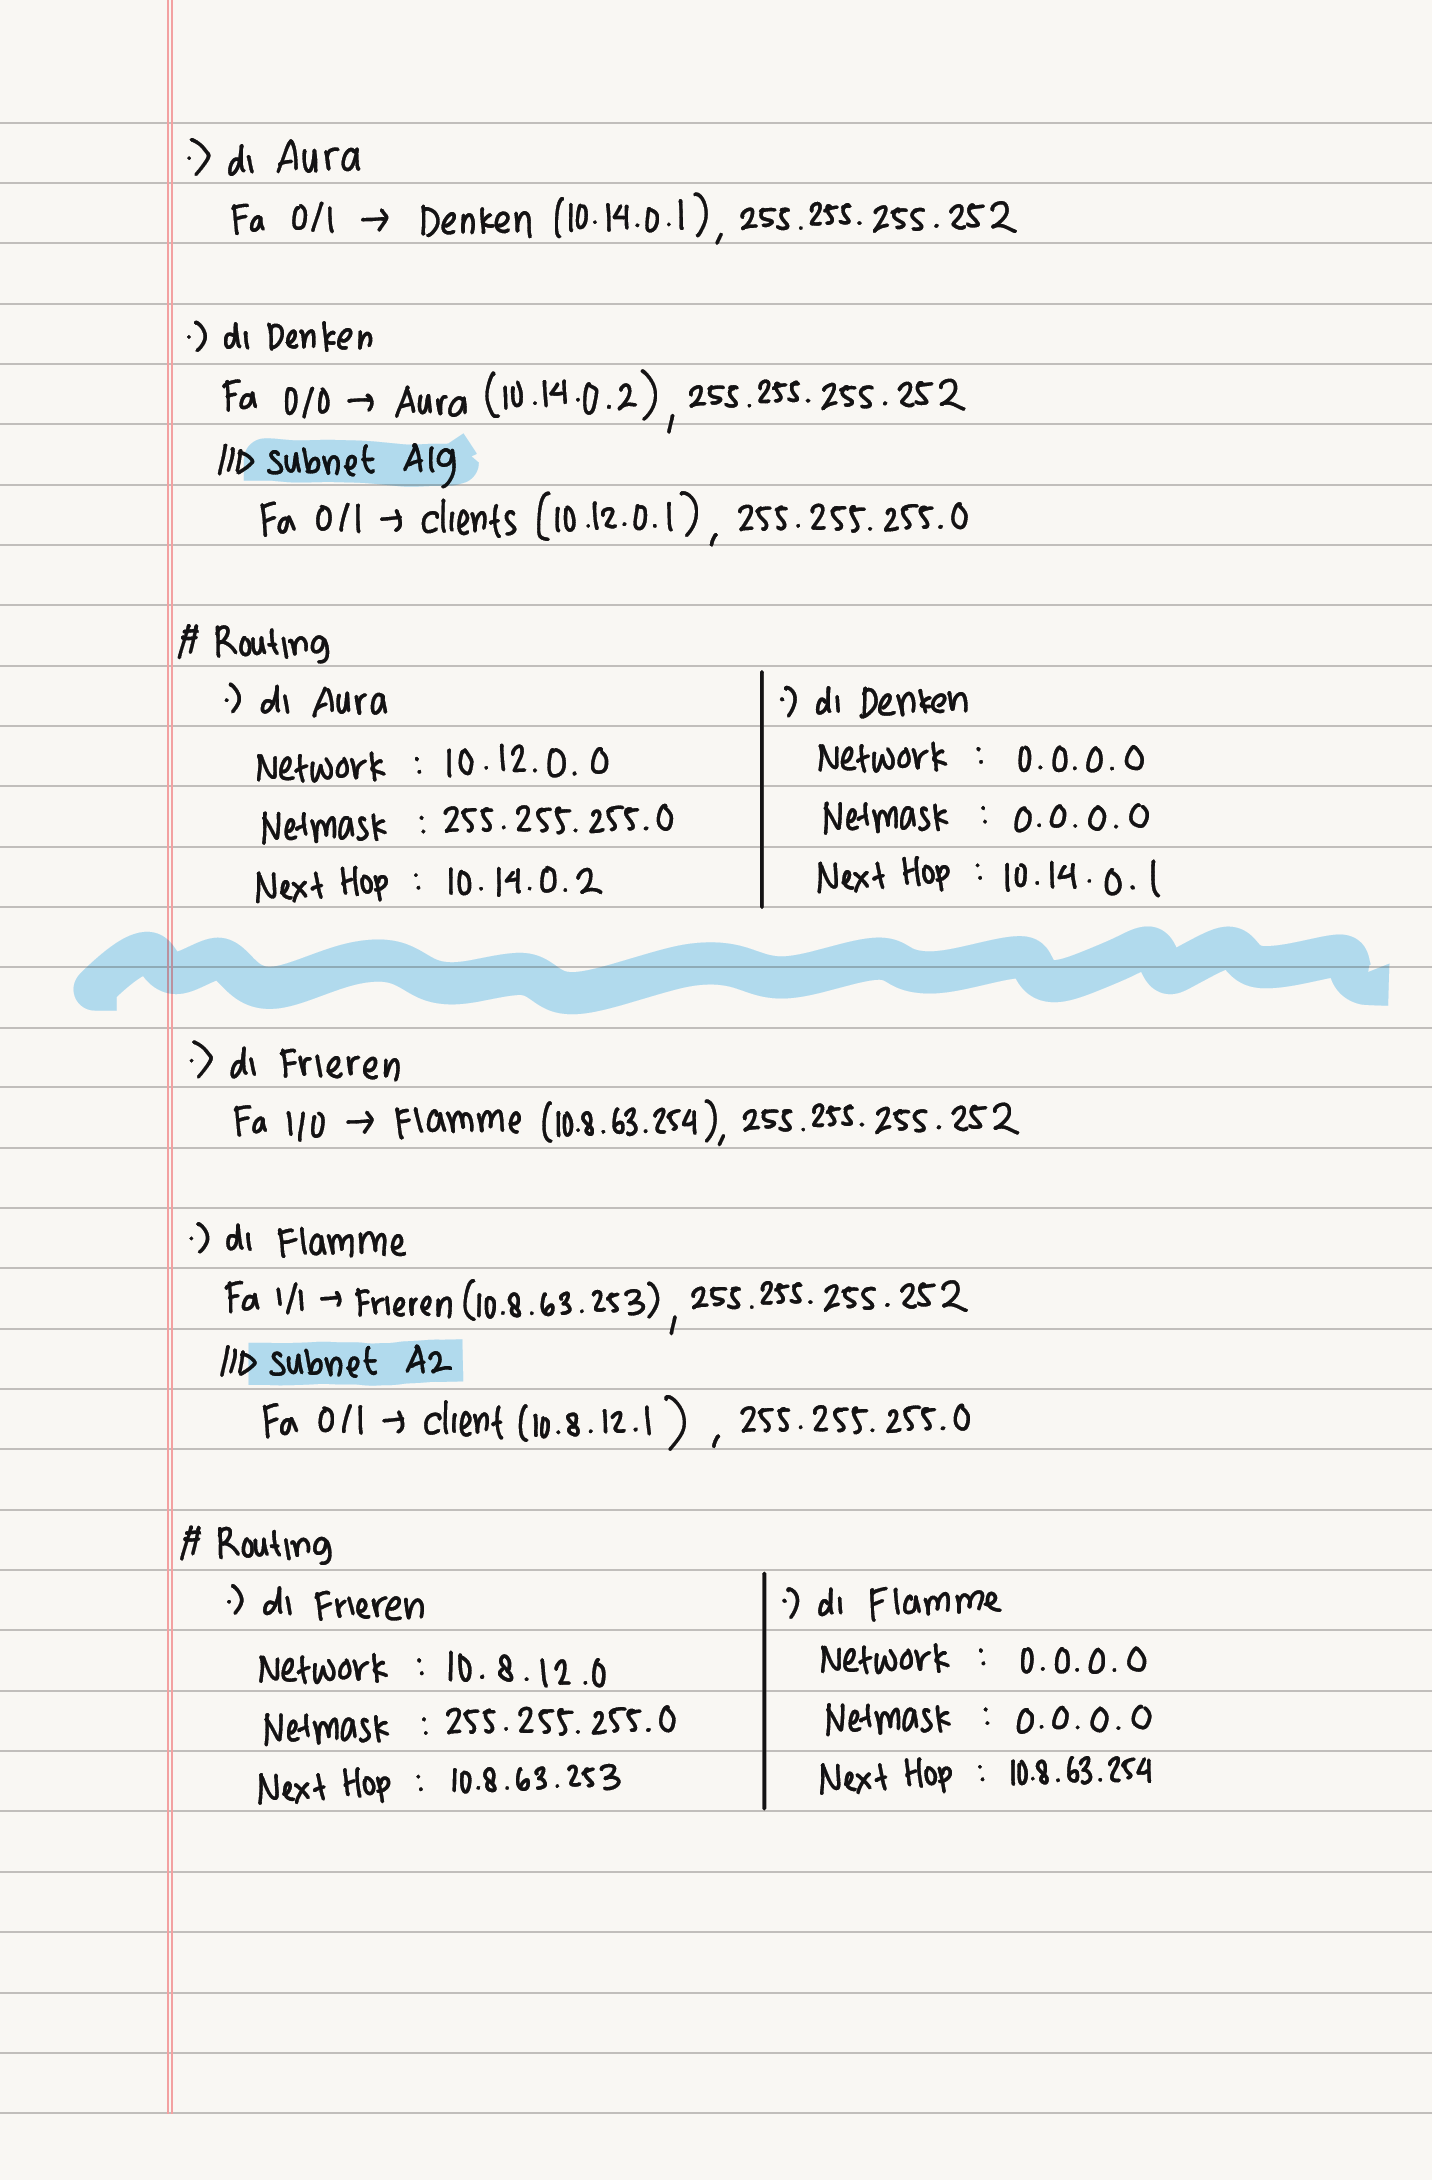 ·) di Aura
Fa 0/1 → Denken (10.14.0.1), 255.255.255.252
·) di Denken
Fa 0/0 → Aura (10.14.0.2), 255.255.255.252
Subnet A19
Fa 0/1 → clients (10.12.0.1), 255.255.255.0
# Routing
·) di Aura
Network : 10.12.0.0
Netmask : 255.255.255.0
Next Hop : 10.14.0.2
·) di Denken
Network : 0.0.0.0
Netmask : 0.0.0.0
Next Hop : 10.14.0.1
·) di Frieren
Fa 1/0 → Flamme (10.8.63.254), 255.255.255.252
·) di Flamme
Fa 1/1 → Frieren (10.8.63.253), 255.255.255.252
Subnet A2
Fa 0/1 → client (10.8.12.1), 255.255.255.0
# Routing
·) di Frieren
Network : 10.8.12.0
Netmask : 255.255.255.0
Next Hop : 10.8.63.253
·) di Flamme
Network : 0.0.0.0
Netmask : 0.0.0.0
Next Hop : 10.8.63.254